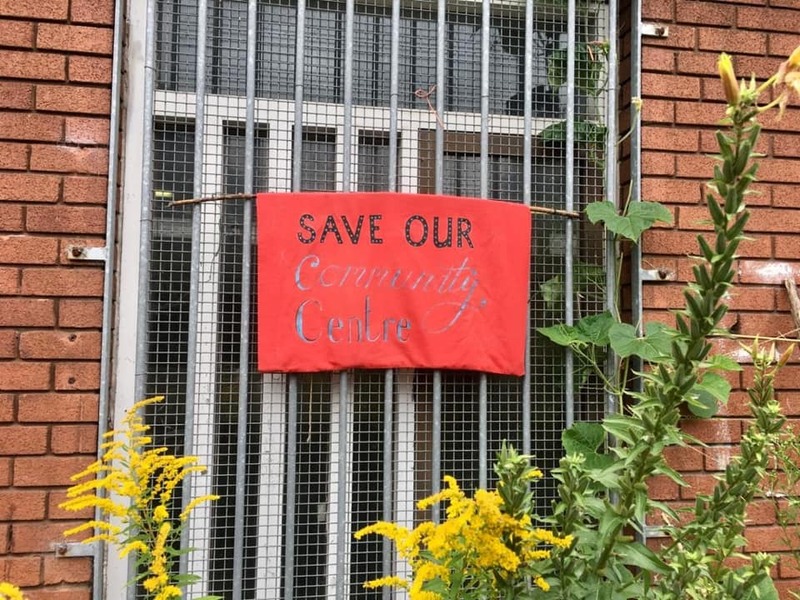 SAVE OUR
Community
Centre